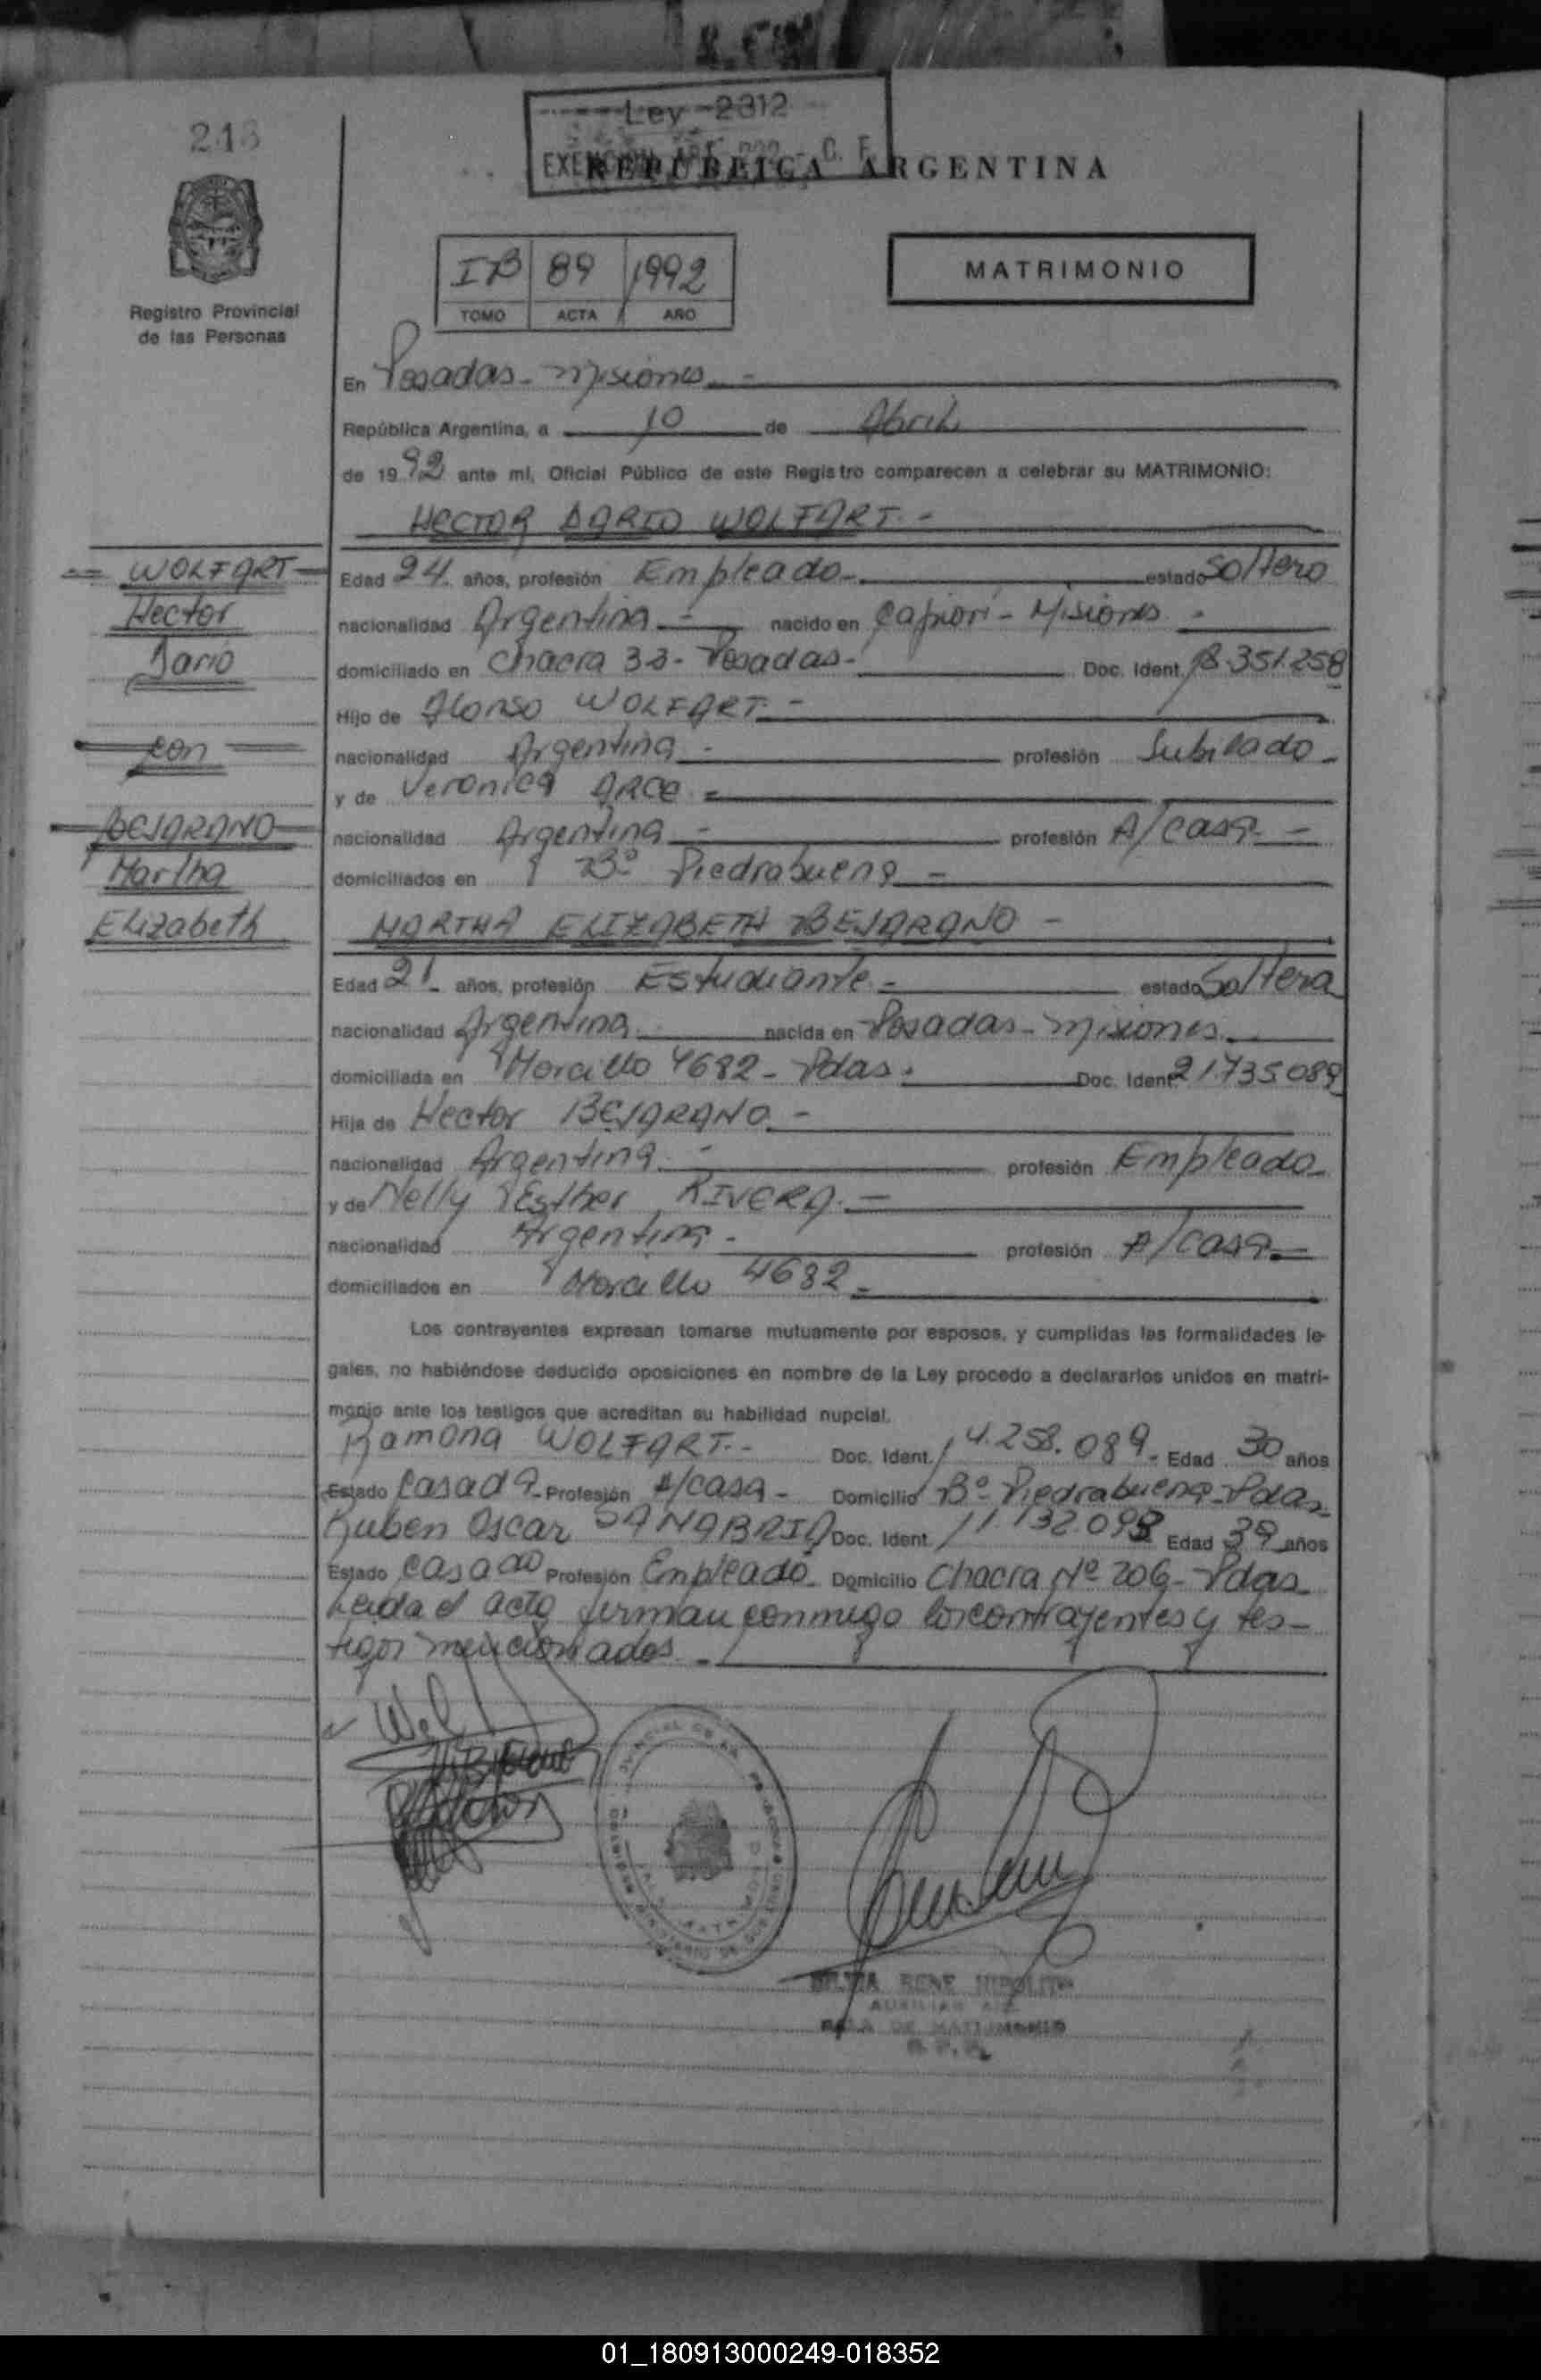 Ley 2312
EXENCION ART.
REPUBLICA ARGENTINA
Registro Provincial
de las Personas
IB 89 1992
TOMO ACTA AÑO
MATRIMONIO
En Posadas - Misiones -
República Argentina, a 10 de Abril
de 1992 ante mi, Oficial Público de este Registro comparecen a celebrar su MATRIMONIO:
HECTOR DARIO WOLFART -
WOLFART
Hector
Dario
con
BEJARANO
Martha
Elizabeth
Edad 24 años, profesión Empleado - estado Soltero
nacionalidad Argentina - nacido en Capiovi - Misiones -
domiciliado en Chacra 33 - Posadas - Doc. Ident. 18.351.258
Hijo de Alonso WOLFART -
nacionalidad Argentina - profesión Jubilado -
y de Veronica ARCE -
nacionalidad Argentina - profesión A/casa -
domiciliados en Bº Piedrabuena -
MARTHA ELIZABETH BEJARANO -
Edad 21 - años, profesión Estudiante - estado Soltera
nacionalidad Argentina nacida en Posadas - Misiones
domiciliada en Morcillo 4682 - Pdas. Doc. Ident. 21.735.089
Hija de Hector BEJARANO -
nacionalidad Argentina - profesión Empleado
y de Nelly Esther RIVERA. -
nacionalidad Argentina - profesión A/casa
domiciliados en Morcillo 4682 -
Los contrayentes expresan tomarse mutuamente por esposos, y cumplidas las formalidades le-
gales, no habiéndose deducido oposiciones en nombre de la Ley procedo a declararlos unidos en matri-
monio ante los testigos que acreditan su habilidad nupcial.
Ramona WOLFART. - Doc. Ident. 14.258.089 - Edad 30 años
Estado Casada - Profesión A/casa - Domicilio Bº Piedrabuena - Pdas
Ruben Oscar SANABRIA Doc. Ident. 11.132.093 Edad 39 años
Estado Casado Profesión Empleado - Domicilio Chacra Nº 206 - Pdas
Leida el acto firman conmigo los contrayentes y tes-
tigos mencionados. -
RENE HIPOLITO
AUXILIAR
SALA DE MATRIMONIO
01_180913000249-018352